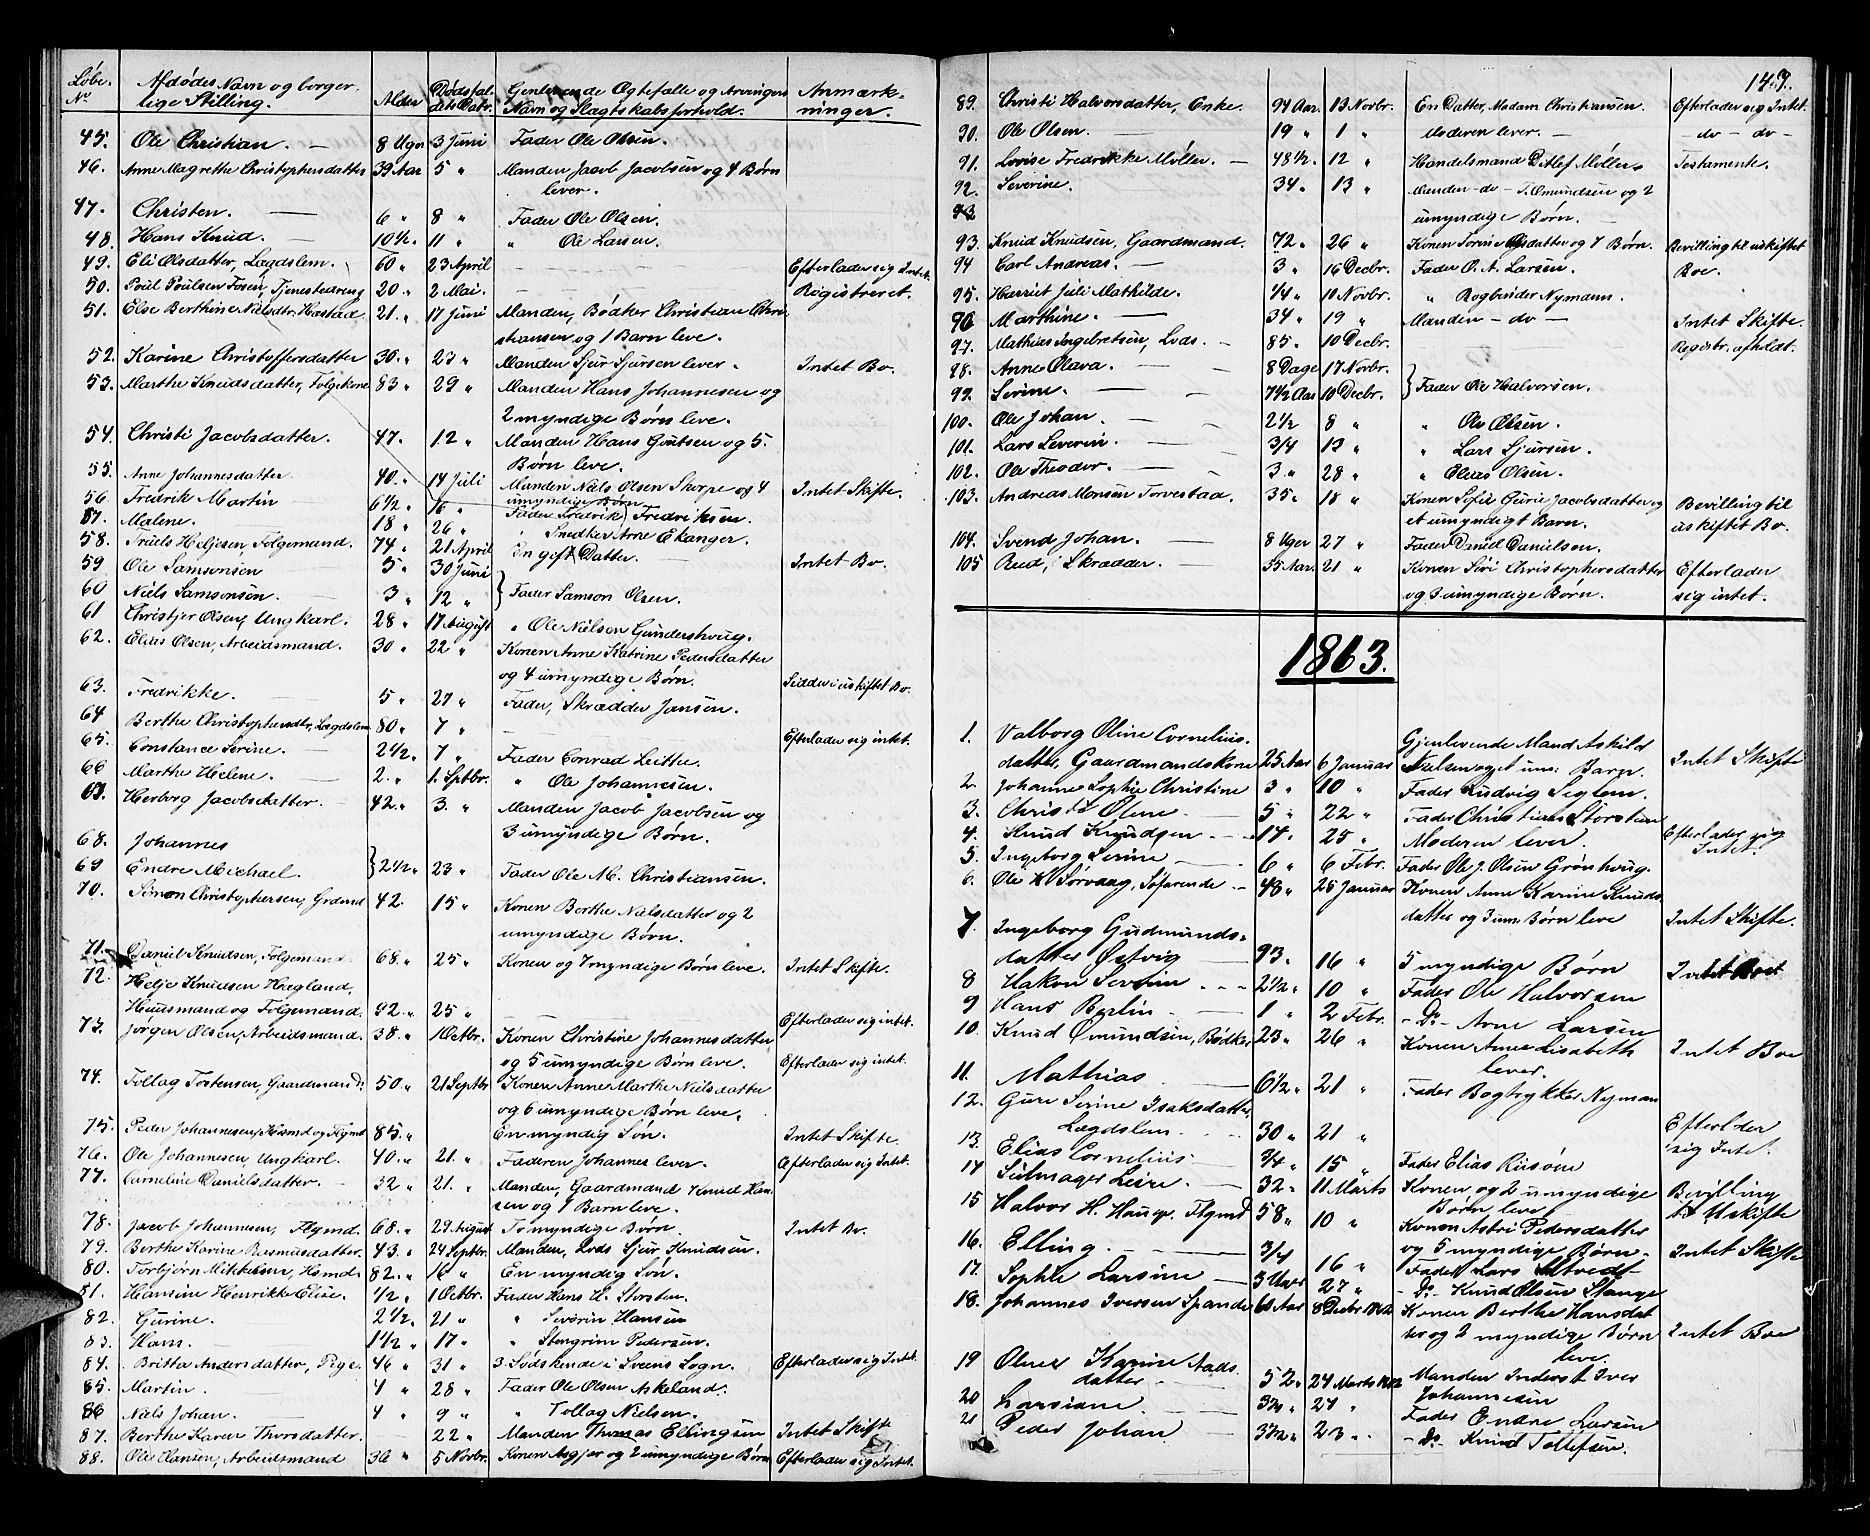 Løbe. No | Afdødes Navn og borgerlige Stilling. | Alder | Dødsfaldets Datr. | Genlevende Ægtefalle og Arvingers Navn og Slagtskabsforhold. | Anmærkninger.
45. Ole Christian. — 8 Uger 3 Juni Fader Ole Olsen.
46. Anne Magrethe Christophersdatter 39 Aar 5 " Manden Jacob Jacobsen og 4 Børn
lever.
47. Christen. — 6 " 8 " Fader Ole Olsen.
48. Hans Knud. — 10 1/2 " 11 " " Ole Larsen.
49. Eli Olsdatter, Lægdslem. 60 " 23 April — Efterlader sig Intet.
50. Poul Poulsen Fosen, Tjenestedreng 20 " 2 Mai. — Registreret.
51. Else Berthine Nielsdtr. Hastad 21. " 17 Juni Manden, Bødker Christian Chri-
stiansen og 1 Barn leve.
52. Karine Christoffersdatter 30. " 23 " Manden Sjur Sjursen lever. Intet Bo.
53. Marthe Knudsdatter, Folgekone 83 " 29 " Manden Hans Johannesen og
2 myndige Børn leve.
54. Christi Jacobsdatter. 47. " 12 " Manden Hans Goutsen og 5.
Børn leve.
55. Anne Johannesdatter. 40. " 14 Juli Manden Niels Olsen Skorpe og 4 Intet Skifte.
umyndige Børn
56. Fredrik Martin 6 1/2 " 16 " Fader Fredrik Fredriksen.
57. Malene. 18 " 26 " " Snedker Arne Ekanger.
58. Truels Heljesen, Folgemand. 74 " 21 April En gift Datter. — Intet Bo.
59 Ole Samsonsen 5 " 30 Juni
60 Niels Samsonsen. 3 " 12 " } Fader Samson Olsen.
61 Christjer Olsen, Ungkarl. 28 " 17 August " Ole Nielsen Gunderhoug.
62. Elias Olsen, Arbeidsmand. 30 " 22 " Konen Anne Katrine Pedersdatter
og 4 umyndige Børn. Sidder i uskiftet Bo.
63. Fredrikke. — 5 " 27 " Fader, Skrædder Jansen.
64 Berthe Christophersdtr, Lægdslem 80 " 7 " — Efterlader sig intet.
65. Constance Serine. — 2 1/2 " 7 " Fader Conrad Leitthe.
66 Marthe Helene. — 2. " 1. Sptbr. " Ole Johannesen.
67. Herborg Jacobsdatter. — 42. " 3. " Manden Jacob Jacobsen og
3 umyndige Børn.
68. Johannes
69 Endre Michael. } 2 1/2 " 23 " Fader Ole M. Christiansen.
70. Simon Christophersen, Grdmd 42. 15 " Konen Berthe Nielsdatter og 2
umyndige Børn.
71. Daniel Knudsen, Folgemand. 68. " 25 " Konen og 7 myndige Børn leve. Intet Skifte.
72. Helje Knudsen Hægland,
Huusmand og Folgemand. 92. " 25 " — Efterlader sig intet.
73. Jørgen Olsen, Arbeidsmand. 38. " 1 Octbr. Konen Christine Johannesdatter
og 5 umyndige Børn leve. Efterlader sig intet.
74. Tollag Tostensen, Gaardmand. 50. " 21 Septbr Konen Anne Marthe Nielsdatter
og 6 umyndige Børn leve.
75. Peder Johannesen, Husmd og Flgmd 85. " En myndig Søn. Intet Skifte.
76. Ole Johannesen, Ungkarl. 40. " 21. " Faderen Johannes lever. Efterlader sig Intet.
77. Carneline Danielsdatter. — 32 " 21. " Manden, Gaardmand Knud Han-
sen og 1 Barn leve.
78. Jacob Johannesen, Flgmd. 68. " 29 August To myndige Børn. Intet Bo.
79. Berthe Karine Rasmusdatter. 43. " 24 Septbr. Manden, Lods Sjur Knudsen.
80. Torbjørn Mikkelsen, Hsmd. 82. " 16 " En myndig Søn.
81. Hansine Henrikke Oline. 1/2 " 1 Octbr. Fader Hans H. Storsten.
82. Gurine. 2 1/2 " 21 " " Severin Hansen
83. Hans. — 1 1/2 " 17 " " Stengrim Pedersen.
84. Britta Andersdatter, Pige. 46 " 31 " 3 Sødskende i Sveens Sogn. Efterlader sig Intet.
85. Martin. — 4 " 28 " Fader Ole Olsen Askeland.
86 Niels Johan. 4 " 9 " " Tollag Nielsen.
87. Berthe Karen Thorsdatter. — 22 " Manden Thomas Ellingsen Intet Skift
88. Ole Hansen, Arbeidsmand 36 " 5 Novbr. Konen Asgjer og 2 umyndige Børn Efterlader sig Intet.
147.
89. Christi Halvorsdatter, Enke. 94 Aar. 13 Novbr. En Datter, Madam Christiansen. Efterlader sig Intet.
90. Ole Olsen. — 19 " 1 " Moderen lever. — — do — do —
91. Lovise Fredrikke Møller. — 48 1/2. 12 " Handelsmand Ditlef Møller. Testamente.
92. Severine. 34. " 13 " Manden — do — T. Omundsen og 2
93 umyndige Børn. —
93. Knud Knudsen, Gaardmand. 72 " 26 " Konen Torine datter og 7 Børn. Bevilling til uskiftet
94 Carl Andreas. — 3 " 16 Decbr. Fader O. A. Larsen. Boe.
95. Harriet Juli Mathilde. 1/4 " 10 Novbr. " Bogbinder Nymann.
96 Marthine. — 34 " 19 " Manden — do — Intet Skifte.
97. Mathias Ingebretsen, Lods. — 85. " 10 Decbr. Registr. afholdt.
98. Anne Olava. — 8 Dage 17 Novbr.
99. Serine. — 7 1/2 Aar 10 Decbr. } Fader Ole Halvorsen.
100. Ole Johan. — 2 1/2 8 " " Ole Olsen.
101. Lars Severin — 3/4 13 " " Lars Sjursen.
102. Ole Theodor. — 3. " 28 " " Elias Olsen.
103. Andreas Monsen Torvestad. 35. " 18 " Konen Sofie Gurie Jacobsdatter og Bevilling til
et umyndigt Barn. uskiftet Bo.
104. Svend Johan. — 8 Uger 27 " Fader Daniel Danielsen.
105 Reed, Skrædder. — 35 Aar. 21 " Konen Siri Christophersdatter Efterlader
og 3 umyndige Børn. sig intet.
1863.
1. Valborg Oline Cornelius-
datter, Gaardmandskone 25 Aar 6 Januar Gjenlevende Mand Askild
Nielsen og et um: Barn. Intet Skifte
2. Johanne Sophie Christine 3 " 10 " Fader Ludvig Seglem.
3. Christi Oline — 5 " 22 " Fader Christian Storsteen
4. Knud Knudsen — 14. " 25 " Moderen lever. Efterlader sig
Intet.
5. Ingeborg Serine — 6 " 6 Febr. Fader Ole J. Olsen Grønhoug.
6. Ole H. Sørvaag, Søfarende — 48 " 25 Januar Konen Anne Karine Knuds-
datter og 3 um. Børn leve Intet Skifte.
7. Ingeborg Gudmunds-
datter Østvig — 93. " 16 " 5 myndige Børn Intet Boet.
8 Hakon Severin — 2 1/2 " 10 " Fader Ole Halvorsen
9 Hans Bertin — 1 " 2 Febr. — Do — Arne Larsen
10. Knud Omundsen, Bødker 23 " 26 " Konen Anne Lisabeth
lever. Intet Boe
11. Mathias — 6 1/2 " 21 " Fader Bogtrykker Nyman
12. Gure Serine Isaksdatter
Lægdslem. 30 " 21 " Efterlder
sig Intet.
13. Elias Cornelius — 3/4 " 15 " Fader Elias Risøne
14 Seilmager Leire. — 32 " 11 Marts Konen og 2 umyndige
Børn leve Bevilling
til Uskifte
15 Halvor H. Hauge. Flgmd 58 " 10 " Konen Astri Pedersdatter
og 5 myndige Børn. Intet Skifte
16. Elling. — 3/4 16 " Fader Lars
17. Sophie Larsine — 3 Uger 27 " — Do — Knud Olsen Stange
18. Johannes Iversen Spande 61 Aar 8 Decbr 1862 Konen Berthe Hansdat
ter og 2 myndige Børn
leve. Intet Boe
19 Olene Karine Aads
datter — 52. " 24 Marts 1862 Manden Inderst Iver
Johannesen
20 Larsiane. — 3/4 " 27 " Fader Endre Larsen
21 Peder Johan — 3 1/2 " 23 " — Do — Knud Tollefsen.